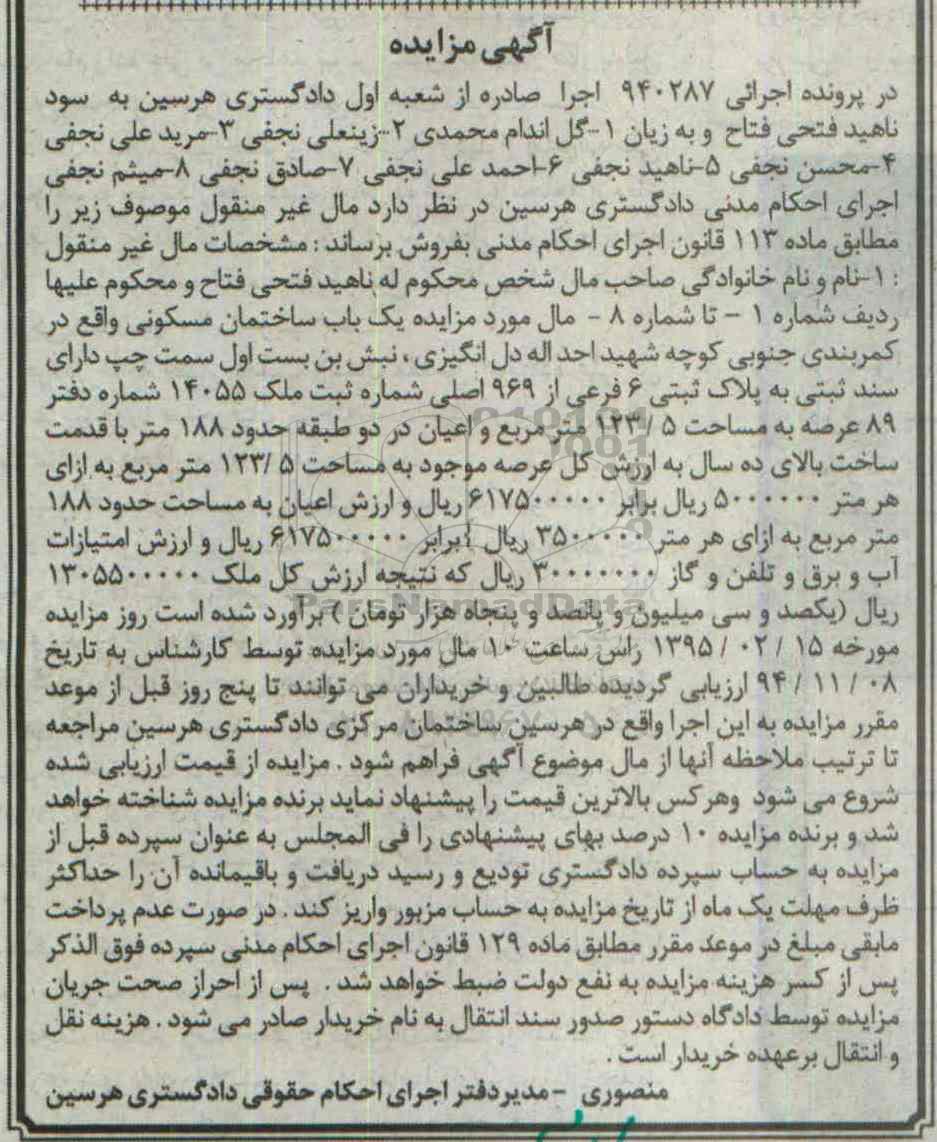 آگهی مزایده
در پرونده اجرائی ۹۴۰۲۸۷ اجرا صادره از شعبه اول دادگستری هرسین به سود
ناهید فتحی فتاح و به زیان ۱-گل اندام محمدی ۲-زینعلی نجفی ۳-مرید علی نجفی
۴-محسن نجفی ۵-ناهید نجفی ۶-احمد علی نجفی ۷-صادق نجفی ۸-میثم نجفی
اجرای احکام مدنی دادگستری هرسین در نظر دارد مال غیر منقول موصوف زیر را
مطابق ماده ۱۱۳ قانون اجرای احکام مدنی بفروش برساند : مشخصات مال غیر منقول
: ۱-نام و نام خانوادگی صاحب مال شخص محکوم له ناهید فتحی فتاح و محکوم علیها
ردیف شماره ۱ – تا شماره ۸ - مال مورد مزایده یک باب ساختمان مسکونی واقع در
کمربندی جنوبی کوچه شهید احد اله دل انگیزی ، نبش بن بست اول سمت چپ دارای
سند ثبتی به پلاک ثبتی ۶ فرعی از ۹۶۹ اصلی شماره ثبت ملک ۱۴۰۵۵ شماره دفتر
۸۹ عرصه به مساحت ۱۲۳/۵ متر مربع و اعیان در دو طبقه حدود ۱۸۸ متر با قدمت
ساخت بالای ده سال به ارزش کل عرصه موجود به مساحت ۱۲۳/۵ متر مربع به ازای
هر متر ۵۰۰۰۰۰۰ ریال برابر ۶۱۷۵۰۰۰۰۰ ریال و ارزش اعیان به مساحت حدود ۱۸۸
متر مربع به ازای هر متر ۳۵۰۰۰۰۰ ریال برابر ۶۱۷۵۰۰۰۰۰ ریال و ارزش امتیازات
آب و برق و تلفن و گاز ۳۰۰۰۰۰۰۰ ریال که نتیجه ارزش کل ملک ۱۳۰۵۵۰۰۰۰۰
ریال (یکصد و سی میلیون و پانصد و پنجاه هزار تومان ) برآورد شده است روز مزایده
مورخه ۱۵ / ۰۲ / ۱۳۹۵ راس ساعت ۱۰ مال مورد مزایده توسط کارشناس به تاریخ
۰۸ / ۱۱ / ۹۴ ارزیابی گردیده طالبین و خریداران می توانند تا پنج روز قبل از موعد
مقرر مزایده به این اجرا واقع در هرسین ساختمان مرکزی دادگستری هرسین مراجعه
تا ترتیب ملاحظه آنها از مال موضوع آگهی فراهم شود . مزایده از قیمت ارزیابی شده
شروع می شود وهرکس بالاترین قیمت را پیشنهاد نماید برنده مزایده شناخته خواهد
شد و برنده مزایده ۱۰ درصد بهای پیشنهادی را فی المجلس به عنوان سپرده قبل از
مزایده به حساب سپرده دادگستری تودیع و رسید دریافت و باقیمانده آن را حداکثر
ظرف مهلت یک ماه از تاریخ مزایده به حساب مزبور واریز کند . در صورت عدم پرداخت
مابقی مبلغ در موعد مقرر مطابق ماده ۱۲۹ قانون اجرای احکام مدنی سپرده فوق الذکر
پس از کسر هزینه مزایده به نفع دولت ضبط خواهد شد . پس از احراز صحت جریان
مزایده توسط دادگاه دستور صدور سند انتقال به نام خریدار صادر می شود . هزینه نقل
و انتقال برعهده خریدار است .
منصوری - مدیردفتر اجرای احکام حقوقی دادگستری هرسین
ParsNamadData